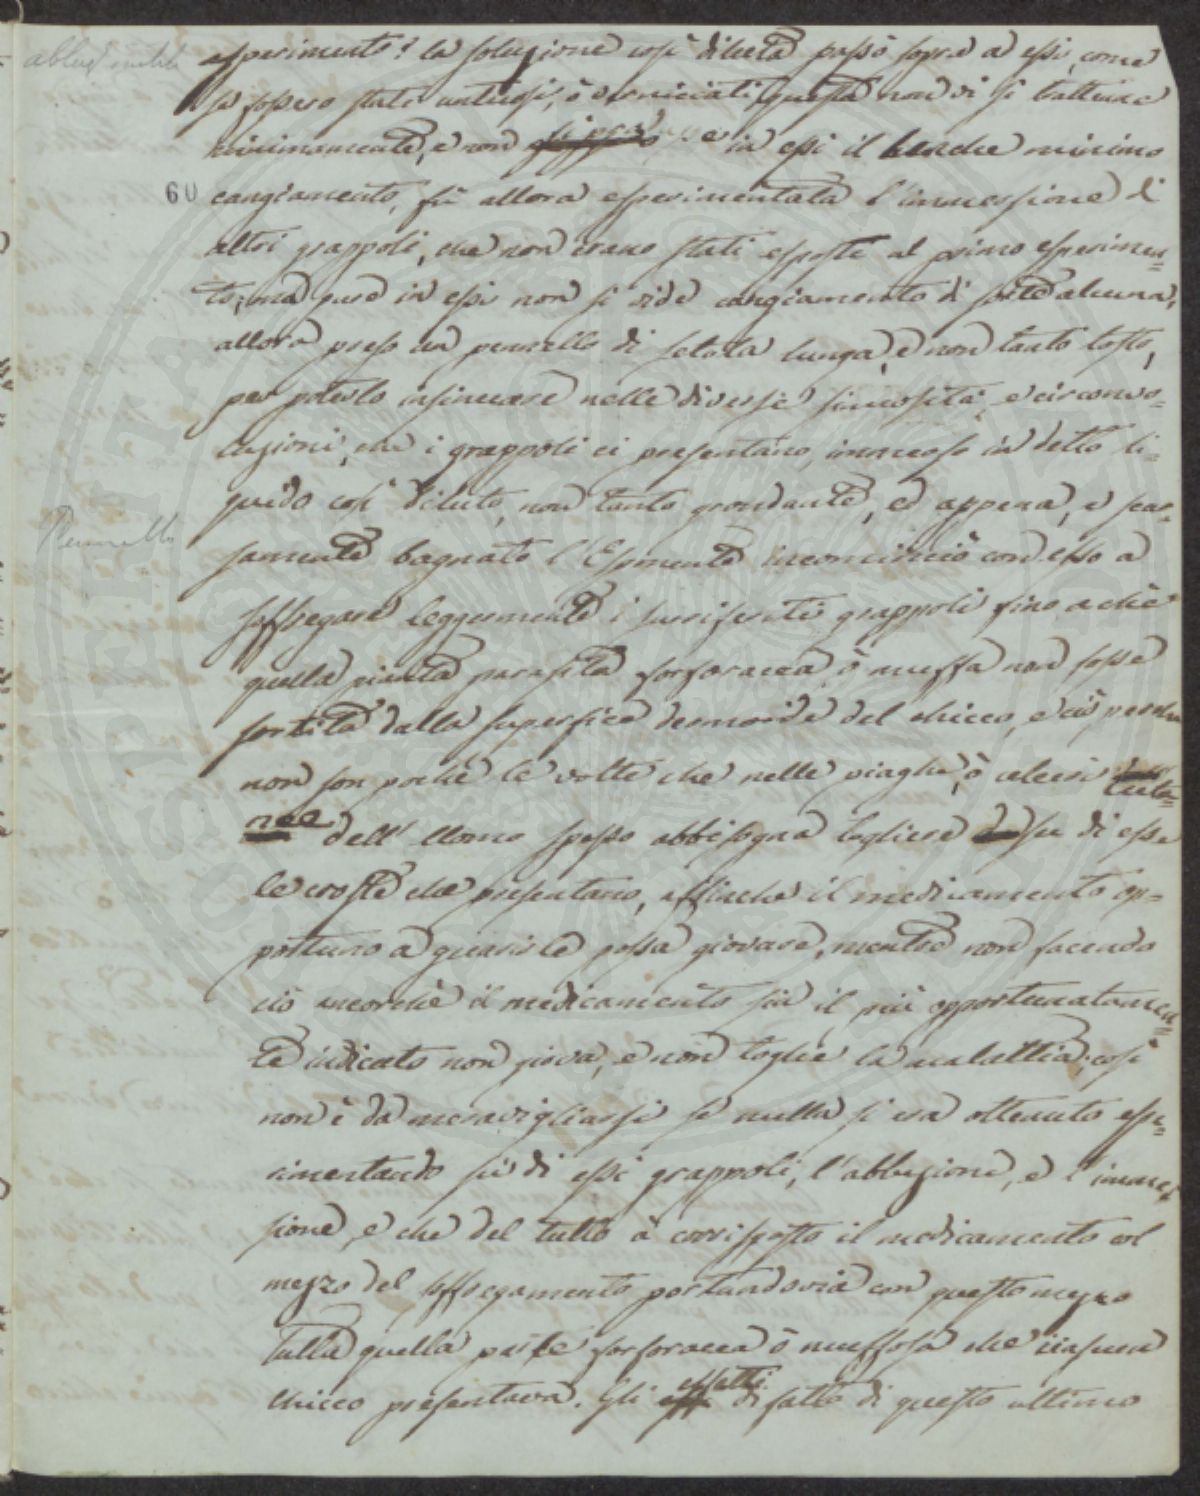 abluz inutile
esperimento? la soluzione così diluita passò sopra a essi, come
se fossero stati untuosi, ò verniciati, questa non vi si trattenne
minimamente, e non in essi il benche minimo
60 cangiamento, fù allora esperimentata l'immersione di
altri grappoli, che non erano stati esposti al primo esperimen=
to, ma pure in essi non si vide cangiamento di sorte alcuna,
allora preso un pennello di setola lunga, e non tanto fosto,
per poterlo insinuare nelle diverse sinuosità, e circonvo=
luzioni, che i grappoli ci presentano, immerso in detto li=
quido così diluto, non tanto grondante, ed appena, e scar=
Pennello
samente bagnato l'Esponente incominciò con esso a
soffregare leggermente i surriferiti grappoli fino a chè
quella pianta parasita forforacea, ò muffa non fosse
sortita dalla superfice dermoide del chicco, e ciò perche
non son poche le volte che nelle piaghe, ò ulceri cuta=
nee dell'Uomo spesso abbisogna togliere su di esse
le croste che presentano, affinche il medicamento op=
portuno a guarirle possa giovare, mentre non facendo
ciò ancorchè il medicamento sia il più opportunatamen=
te indicato non giova, e non toglie la malattia; così
non è da meravigliarsi se nulla si era ottenuto espe=
rimentando sù di essi grappoli, l'abbluzione, e l'immer=
sione, e che del tutto à corrisposto il medicamento col
mezzo del soffregamento portandovia con questo mezzo
tutta quella parte forforacea ò muffosa che ciascun
chicco presentava. Gli effetti difatto di questo ultimo